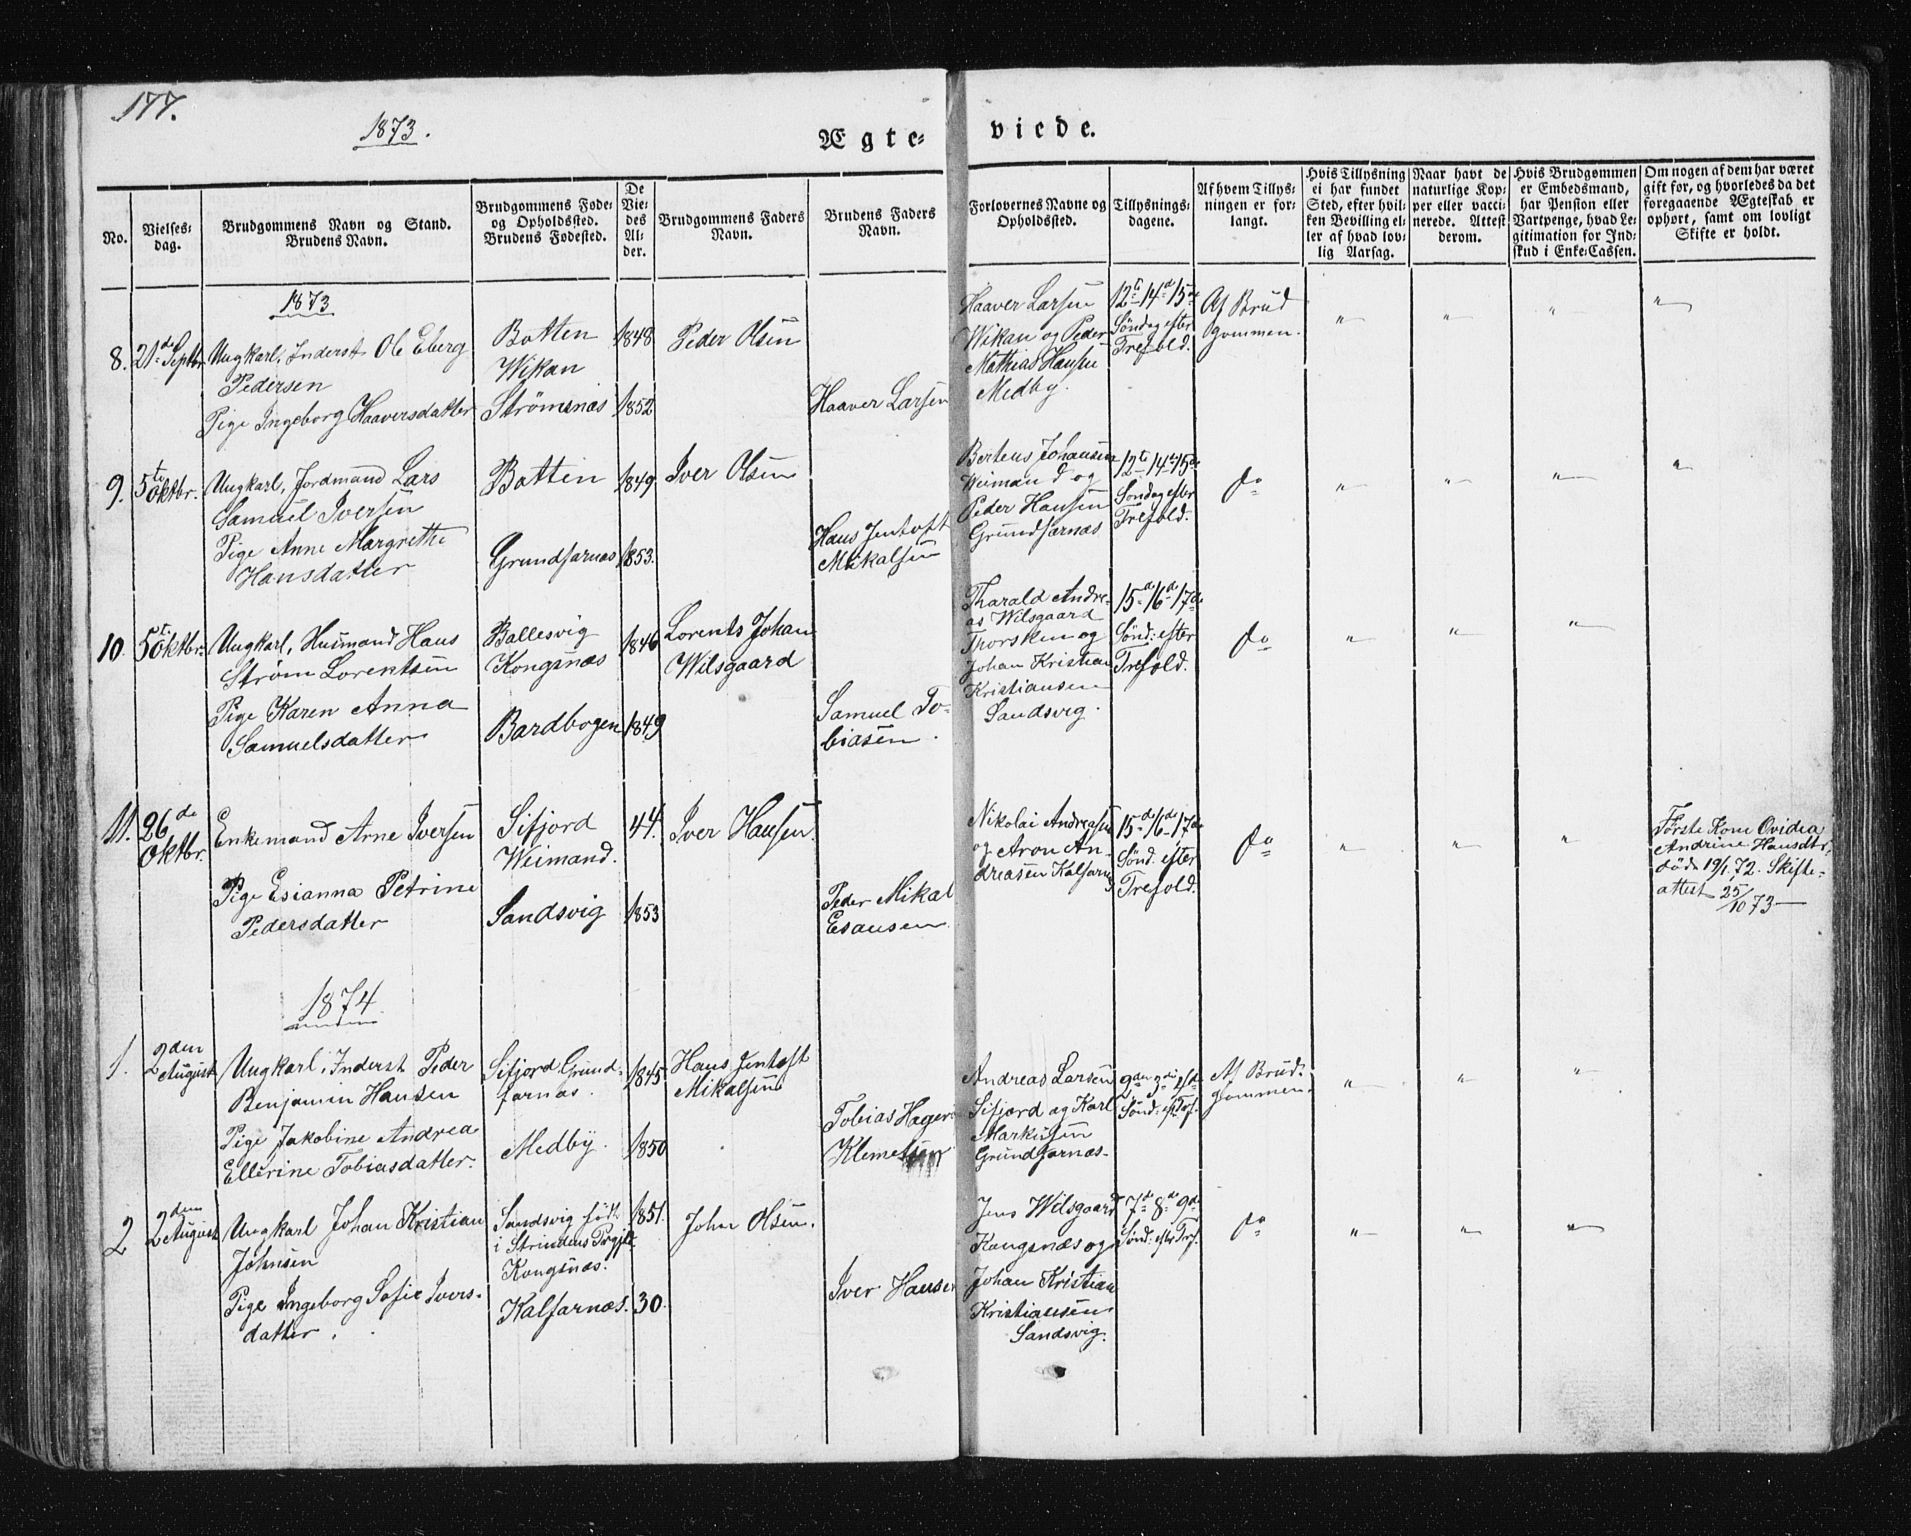 177.
1873.
Ægte-
viede.
No.
Vielses-
dag.
Brudgommens Navn og Stand.
Brudens Navn.
Brudgommens Føde-
og Opholdssted.
Brudens Fødested.
De
Vie-
des
Al-
der.
Brudgommens Faders
Navn.
Brudens Faders
Navn.
Forlovernes Navne og
Opholdssted.
Tillysnings-
dagene.
Af hvem Tillys-
ningen er for-
langt.
Hvis Tillysning
ei har fundet
Sted, efter hvil-
ken Bevilling el-
ler af hvad lov-
lig Aarsag.
Naar havt de
naturlige Kop-
per eller vacci-
nerede. Attest
derom.
Hvis Brudgommen
er Embedsmand,
har Pension eller
Vartpenge, hvad Le-
gitimation for Ind-
skud i Enke-Cassen.
Om nogen af dem har været
gift før, og hvorledes da det
foregaaende Ægteskab er
ophørt, samt om lovligt
Skifte er holdt.
1873
8. 21de Septbr.
Ungkarl, Inderst Ole Eberg
Pedersen
Pige Ingeborg Haaversdatter
Botten
Wikan
Strömsnæs
1848
1852
Peder Olsen
Haaver Larsen
Haaver Larsen
Wikan og Peder
Mathias Hansen
Medby.
12te 14de 15de
Søndag efter
Trefold.
Af Brud
gommen.
" " " "
9. 5te Oktbr.
Ungkarl, Jordmand Lars
Samuel Iversen
Pige Anne Margrethe
Hansdatter
Botten
Grundfarnæs
1849
1853.
Iver Olsen
Hans Jentoft
Mikalsen
Berteus Johansen
Weimand og
Peder Hansen
Grundfarnæs
12te 14de 15de
Søndag efter
Trefold.
do
" " " "
10. 5te Oktbr.
Ungkarl, Husmand Hans
Strøm Lorentsen
Pige Karen Anna
Samuelsdatter
Ballesvig
Kongsnæs
Bardbogen
1846
1849
Lorents Johan
Wilsgaard
Samuel To-
biasen.
Tharald Andre-
as Wilsgaard
Thorsken og
Johan Kristian
Kristiansen
Sandsvig.
15de 16de 17de
Sønd: efter
Trefold.
do
" " "
11. 26de
Oktbr.
Enkemand Arne Iversen
Pige Esianna Petrine
Pedersdatter
Sifjord
Weimand.
Sandsvig
44.
1853
Iver Hansen.
Peder Mikal
Esausen
Nikolai Andreasen
og Aron An-
dreasen Kalfarnæs
15de 16de 17de
Sønd. efter
Trefold.
do
" " "
Første Kone Ovidia
Andrine Hansdtr.
død 19/1 72. Skifte-
attest 25/10 73
1874
1. 2den
August
Ungkarl, Inderst Peder
Benjamin Hansen
Pige Jakobine Andrea
Ellerine Tobiasdatter.
Sifjord Grund-
farnæs.
Medby.
1845
1850
Hans Jentoft
Mikalsen
Tobias Hager
Klemetsen
Andreas Larsen
Sifjord og Karl
Markusen
Grundfarnæs
2den 3die 4de
Sønd: eft Tref.
Af Brud-
gommen.
" " "
2 2den
August
Ungkarl Johan Kristian
Johnsen
Pige Ingeborg Sofie Ivers-
datter.
Sandsvig født
i Strindens Prgjld
Kongsnæs.
Kalfarnæs.
1851.
30.
John Olsen.
Iver Hansen
Jens Wilsgaard
Kongsnæs og
Johan Kristian
Kristiansen
Sandsvig.
7de 8de 9de
Sønd: efter Tref.
do
" " "